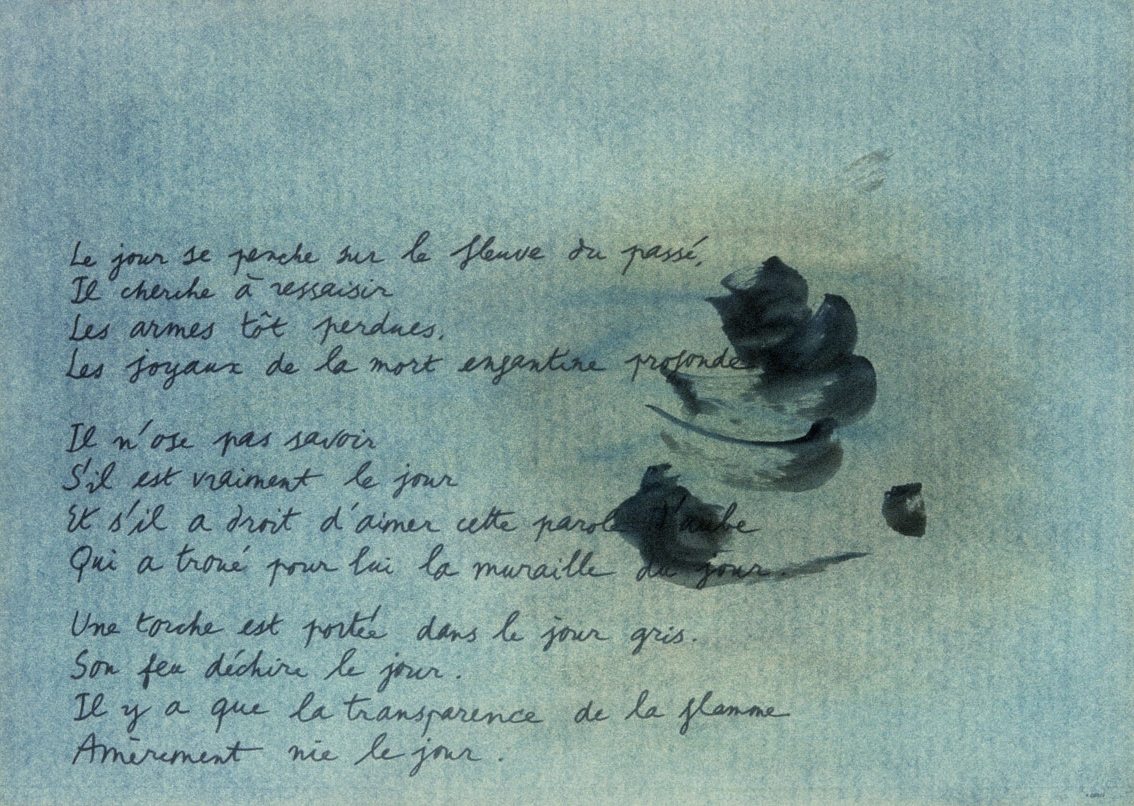 Le jour se penche sur le fleuve du passé,
Il cherche à ressaisir
Les armes tôt perdues,
Les joyaux de la mort enfantine profonde
Il n'ose pas savoir
S'il est vraiment le jour
Et s'il a droit d'aimer cette parole d'aube
Qui a troué pour lui la muraille du jour.
Une torche est portée dans le jour gris.
Son feu déchire le jour.
Il y a que la transparence de la flamme
Amèrement nie le jour.